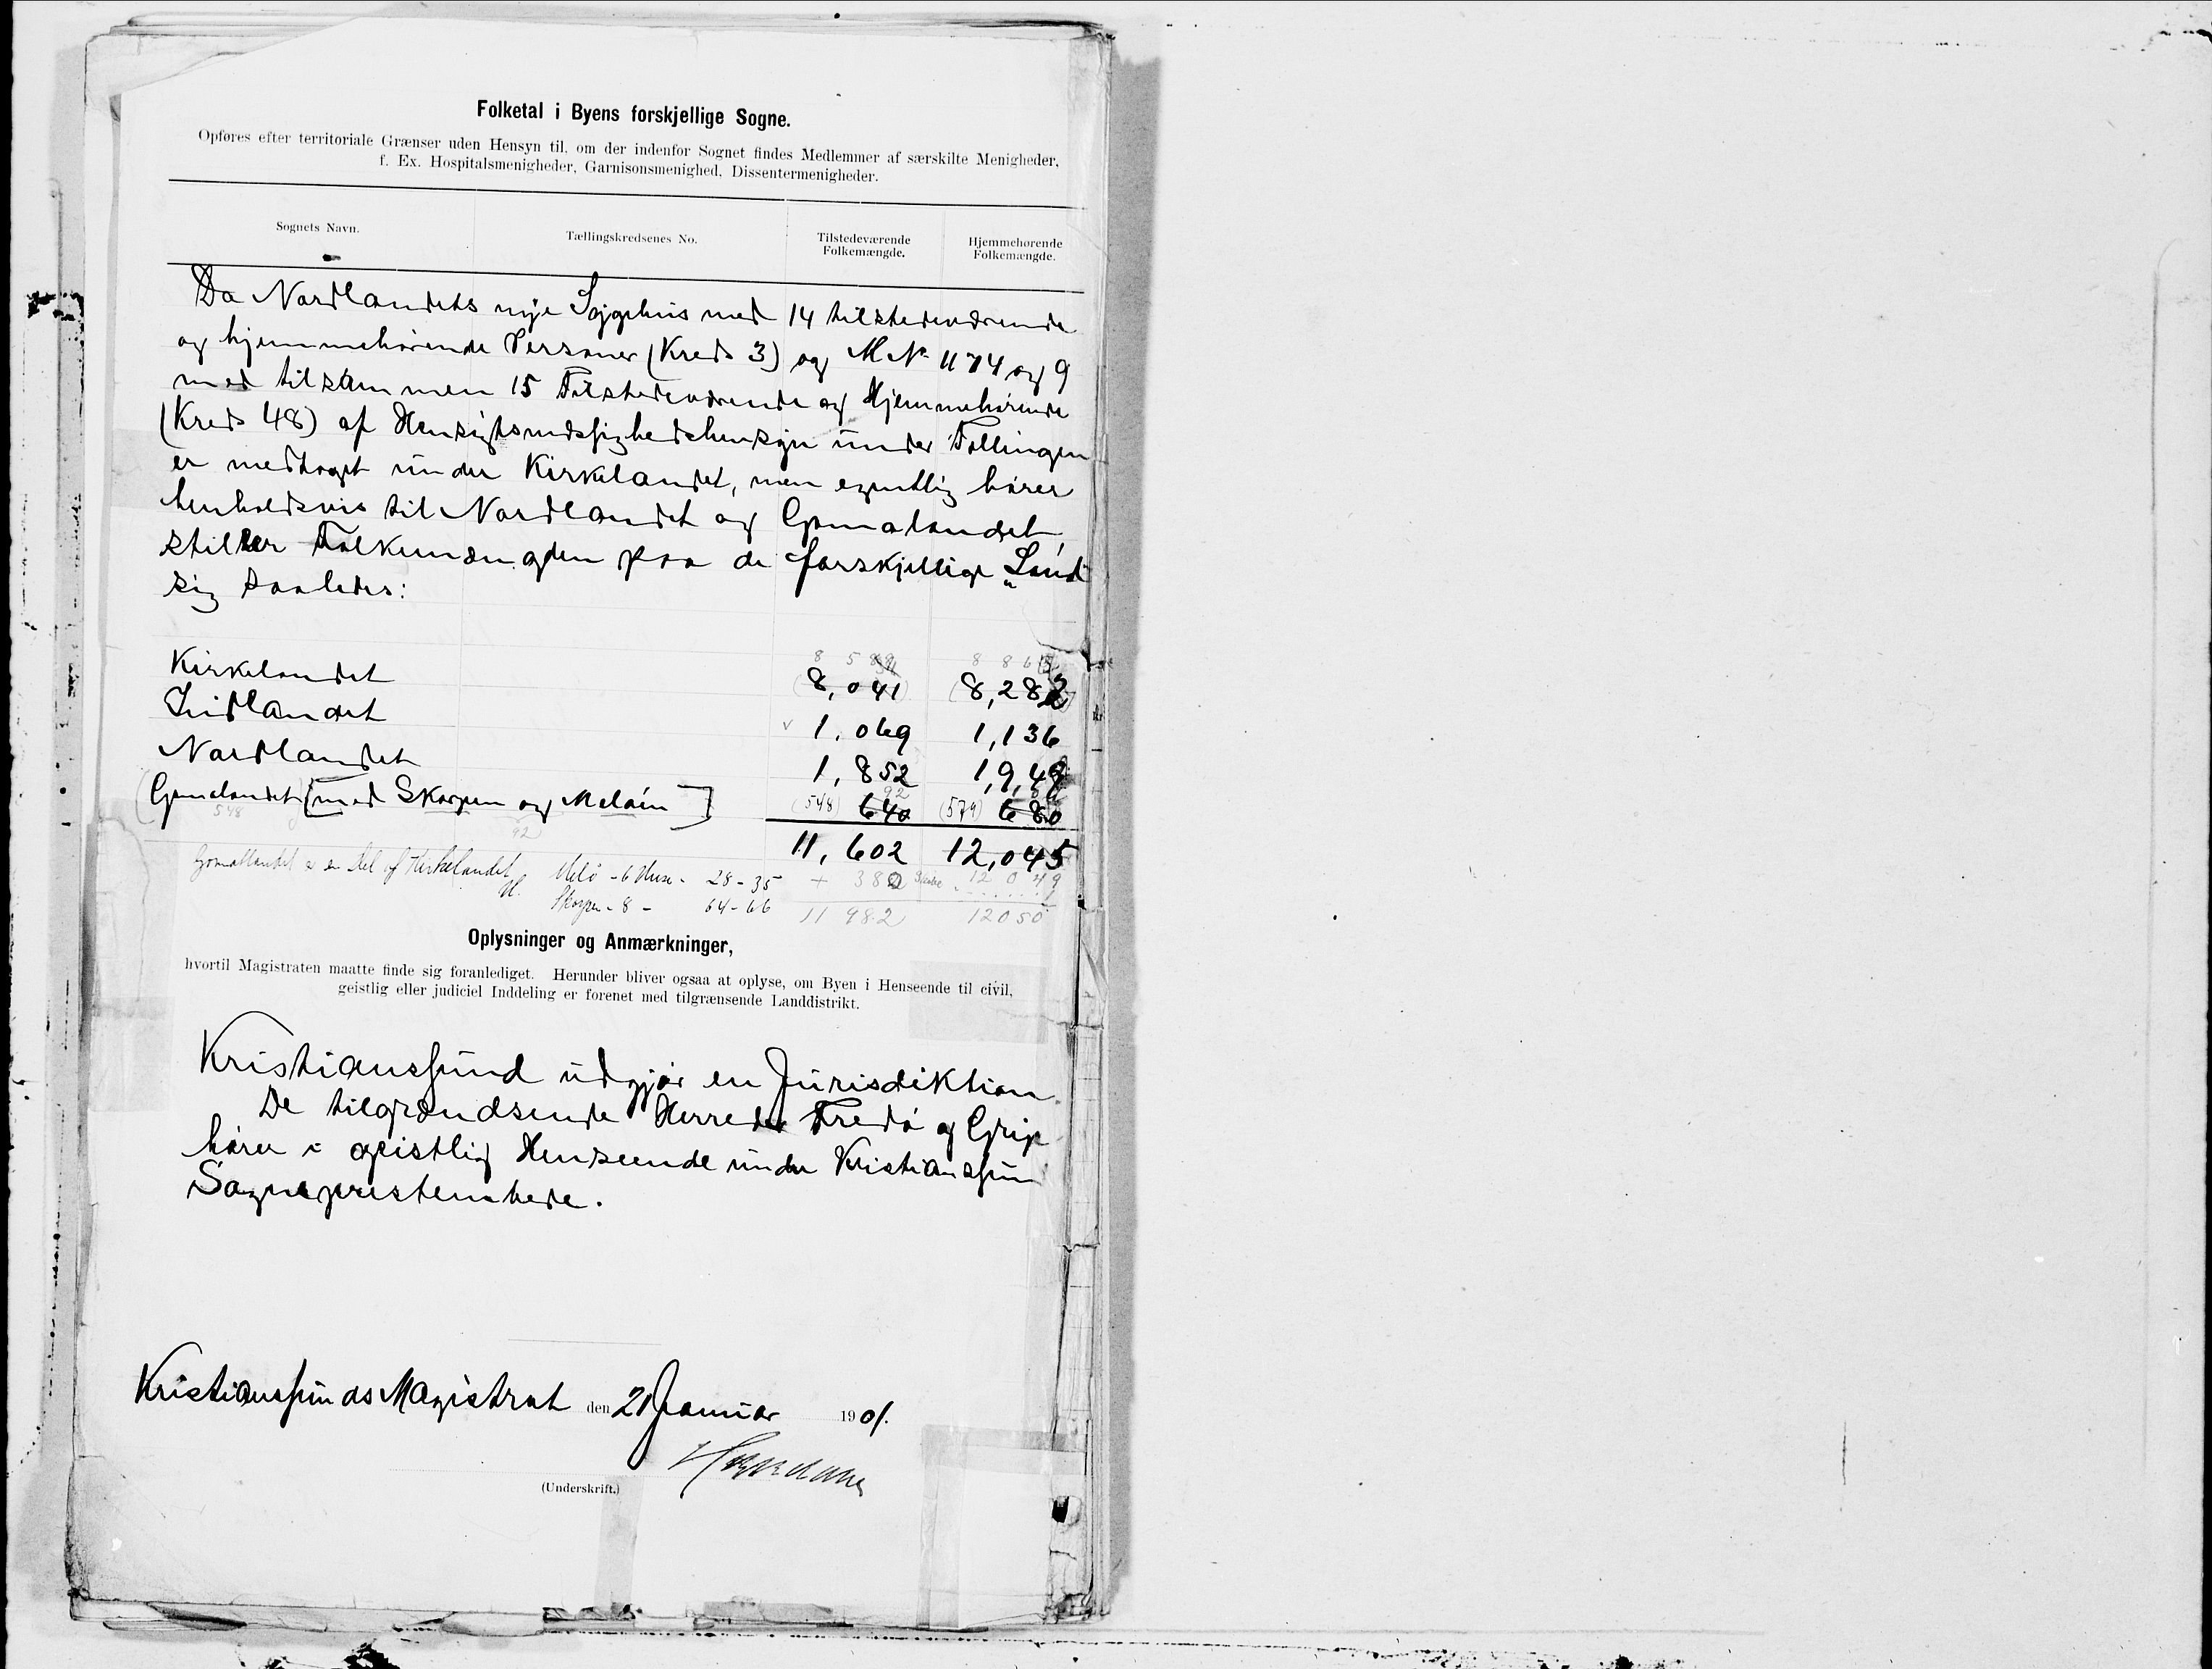 Folketal i Byens forskjellige Sogne.
Opføres efter territoriale Grænser uden Hensyn til, om der indenfor Sognet findes Medlemmer af særskilte Menigheder,
f. Ex. Hospitalsmenigheder, Garnisonsmenighed, Dissentermenigheder.
Sognets Navn. Tællingskredsenes No. Tilstedeværende Folkemængde. Hjemmehørende Folkemængde.
Da Nordlandets nye Sygehus med 14 tilstedeværende
og hjemmehørende Personer (Kreds 3) og M. No. 1174 og 9
med tilsammen 15 Tilstedeværende og Hjemmehørende
(Kreds 48) af Hensigtsmæssighedshensyn under Tællingen
er medtaget under Kirkelandet, men egentlig hører
henholdsvis til Nordlandet og Gomalandet,
stiller Folkemængden paa de forskjellige "Land"
sig saaledes:
8 5 8 8 6
Kirkelandet (8,041) (8,282)
Indlandet v 1,069 1,136
Nordlandet 1,852 1,948
92
Gomelandet [med Skorpen og Meløen] (548) 640 (579) 680
548 92
11,602 12,045
Gomallandet er en Del af Kirkelandet Melø - 6 Huse - 28 - 35 + 380 12 0 49
Skorpen - 8 - 64 - 66 1
11 982 12050
Oplysninger og Anmærkninger,
hvortil Magistraten maatte finde sig foranlediget. Herunder bliver ogsaa at oplyse, om Byen i Henseende til civil,
geistlig eller judiciel Inddeling er forenet med tilgrænsende Landdistrikt.
Kristianssund udgjør en Jurisdiktion.
De tilgrændsende Herreder Fredø og Grip
hører i geistlig Henseende under Kristianssun
Sognepræstembede.
Kristianssunds Magistrat den 21 Januar 1901.
(Underskrift.)